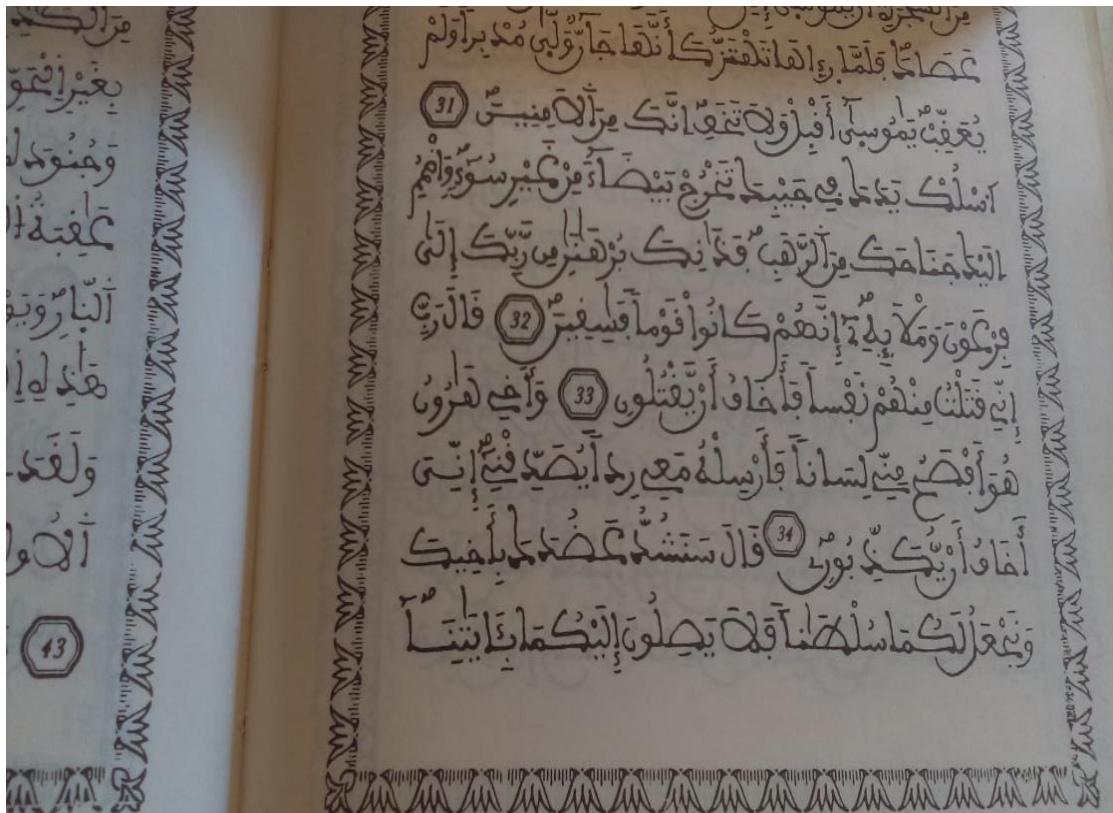 عَصَاكَۖ فَلَمَّا رِءَاهَا تَهْتَزُّ كَأَنَّهَا جَآنّٞ وَلّ۪ىٰ مُدْبِراٗ وَلَمْ
يُعَقِّبْۖ يَٰمُوس۪ىٰٓ أَقْبِلْ وَلَا تَخَفِۖ اِنَّكَ مِنَ اَ۬لَامِنِينَۖ 31
اَ۟سْلُكْ يَدَكَ فِے جَيْبِكَ تَخْرُجْ بَيْضَآءَ مِنْ غَيْرِ سُوٓءٖۖ وَاضْمُمِ
اِلَيْكَ جَنَاحَكَ مِنَ اَ۬لرَّهَبِۖ فَذَٰنِكَ بُرْهَٰنَٰنِ مِن رَّبِّكَ إِلَىٰ
فِرْعَوْنَ وَمَلَإِيْهِۦٓۖ إِنَّهُمْ كَانُواْ قَوْماٗ فَٰسِقِينَۖ 32 قَالَ رَبِّ
إِنِّے قَتَلْتُ مِنْهُمْ نَفْساٗ فَأَخَافُ أَنْ يَّقْتُلُونِۖ 33 وَأَخِے هَٰرُونُ
هُوَ أَفْصَحُ مِنِّے لِسَاناٗ فَأَرْسِلْهُ مَعِے رِداٗ يُصَدِّقْنِےٓۖ إِنِّيَ
أَخَافُ أَنْ يُّكَذِّبُونِۦۖ 34 قَالَ سَنَشُدُّ عَضُدَكَ بِأَخِيكَ
وَنَجْعَلُ لَكُمَا سُلْطَٰناٗ فَلَا يَصِلُونَ إِلَيْكُمَا بِـَٔايَٰتِنَآۖ
بِغَيْرِ اِ۬لْحَقِّ
وَجُنُودَهُۥ
عَٰقِبَةُ
اَ۬لنّ۪ارِۖ
هَٰذِهِ
وَلَقَدَ
43